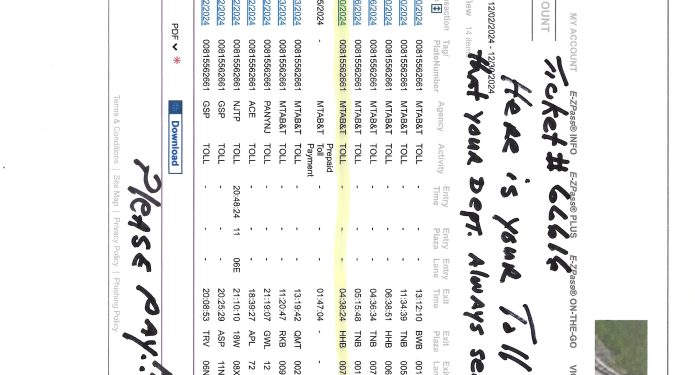 MY ACCOUNT E-ZPass® INFO E-ZPass® PLUS E-ZPass® ON-THE-GO
Ticket #
OUNT
Here is your Toll
12/02/2024 -
that your Dept. Always se
iew 14 item
saction Tag/ Agency Activity Entry Entry Entry Exit Exit Exi
PlateNumber Time Plaza Lane Time Plaza Lan
0/2024 00815562661 MTAB&T TOLL - - - 13:12:10 BWB 001
0/2024 00815562661 MTAB&T TOLL - - - 11:34:39 TNB
6/2024 00815562661 MTAB&T TOLL - - - 06:36:51 HHB 006
6/2024 00815562661 MTAB&T TOLL - - - 04:36:34 TNB
6/2024 00815562661 MTAB&T TOLL - - - 05:15:48 TNB
0/2024 00815562661 MTAB&T TOLL - - - 04:38:24 HHB 007
5/2024 - MTAB&T Prepaid Toll Payment - - - 01:47:04 -
3/2024 00815562661 MTAB&T TOLL - - - 13:19:42 QMT 002
3/2024 00815562661 MTAB&T TOLL - - - 11:20:47 RKB 009
2/2024 00815562661 PANYNJ TOLL - - - 21:19:07 GWL 12
2/2024 00815562661 ACE TOLL - - - 18:39:27 APL 72
2/2024 00815562661 NJTP TOLL 20:48:24 11 06E 21:10:10 18W 08X
2/2024 00815562661 GSP TOLL - - - 20:25:29 ASP 11N
2/2024 00815562661 GSP TOLL - - - 20:08:53 TRV 06N
PDF * Download
Please Pay!!
Terms & Conditions | Site Map | Privacy Policy | Phishing Policy